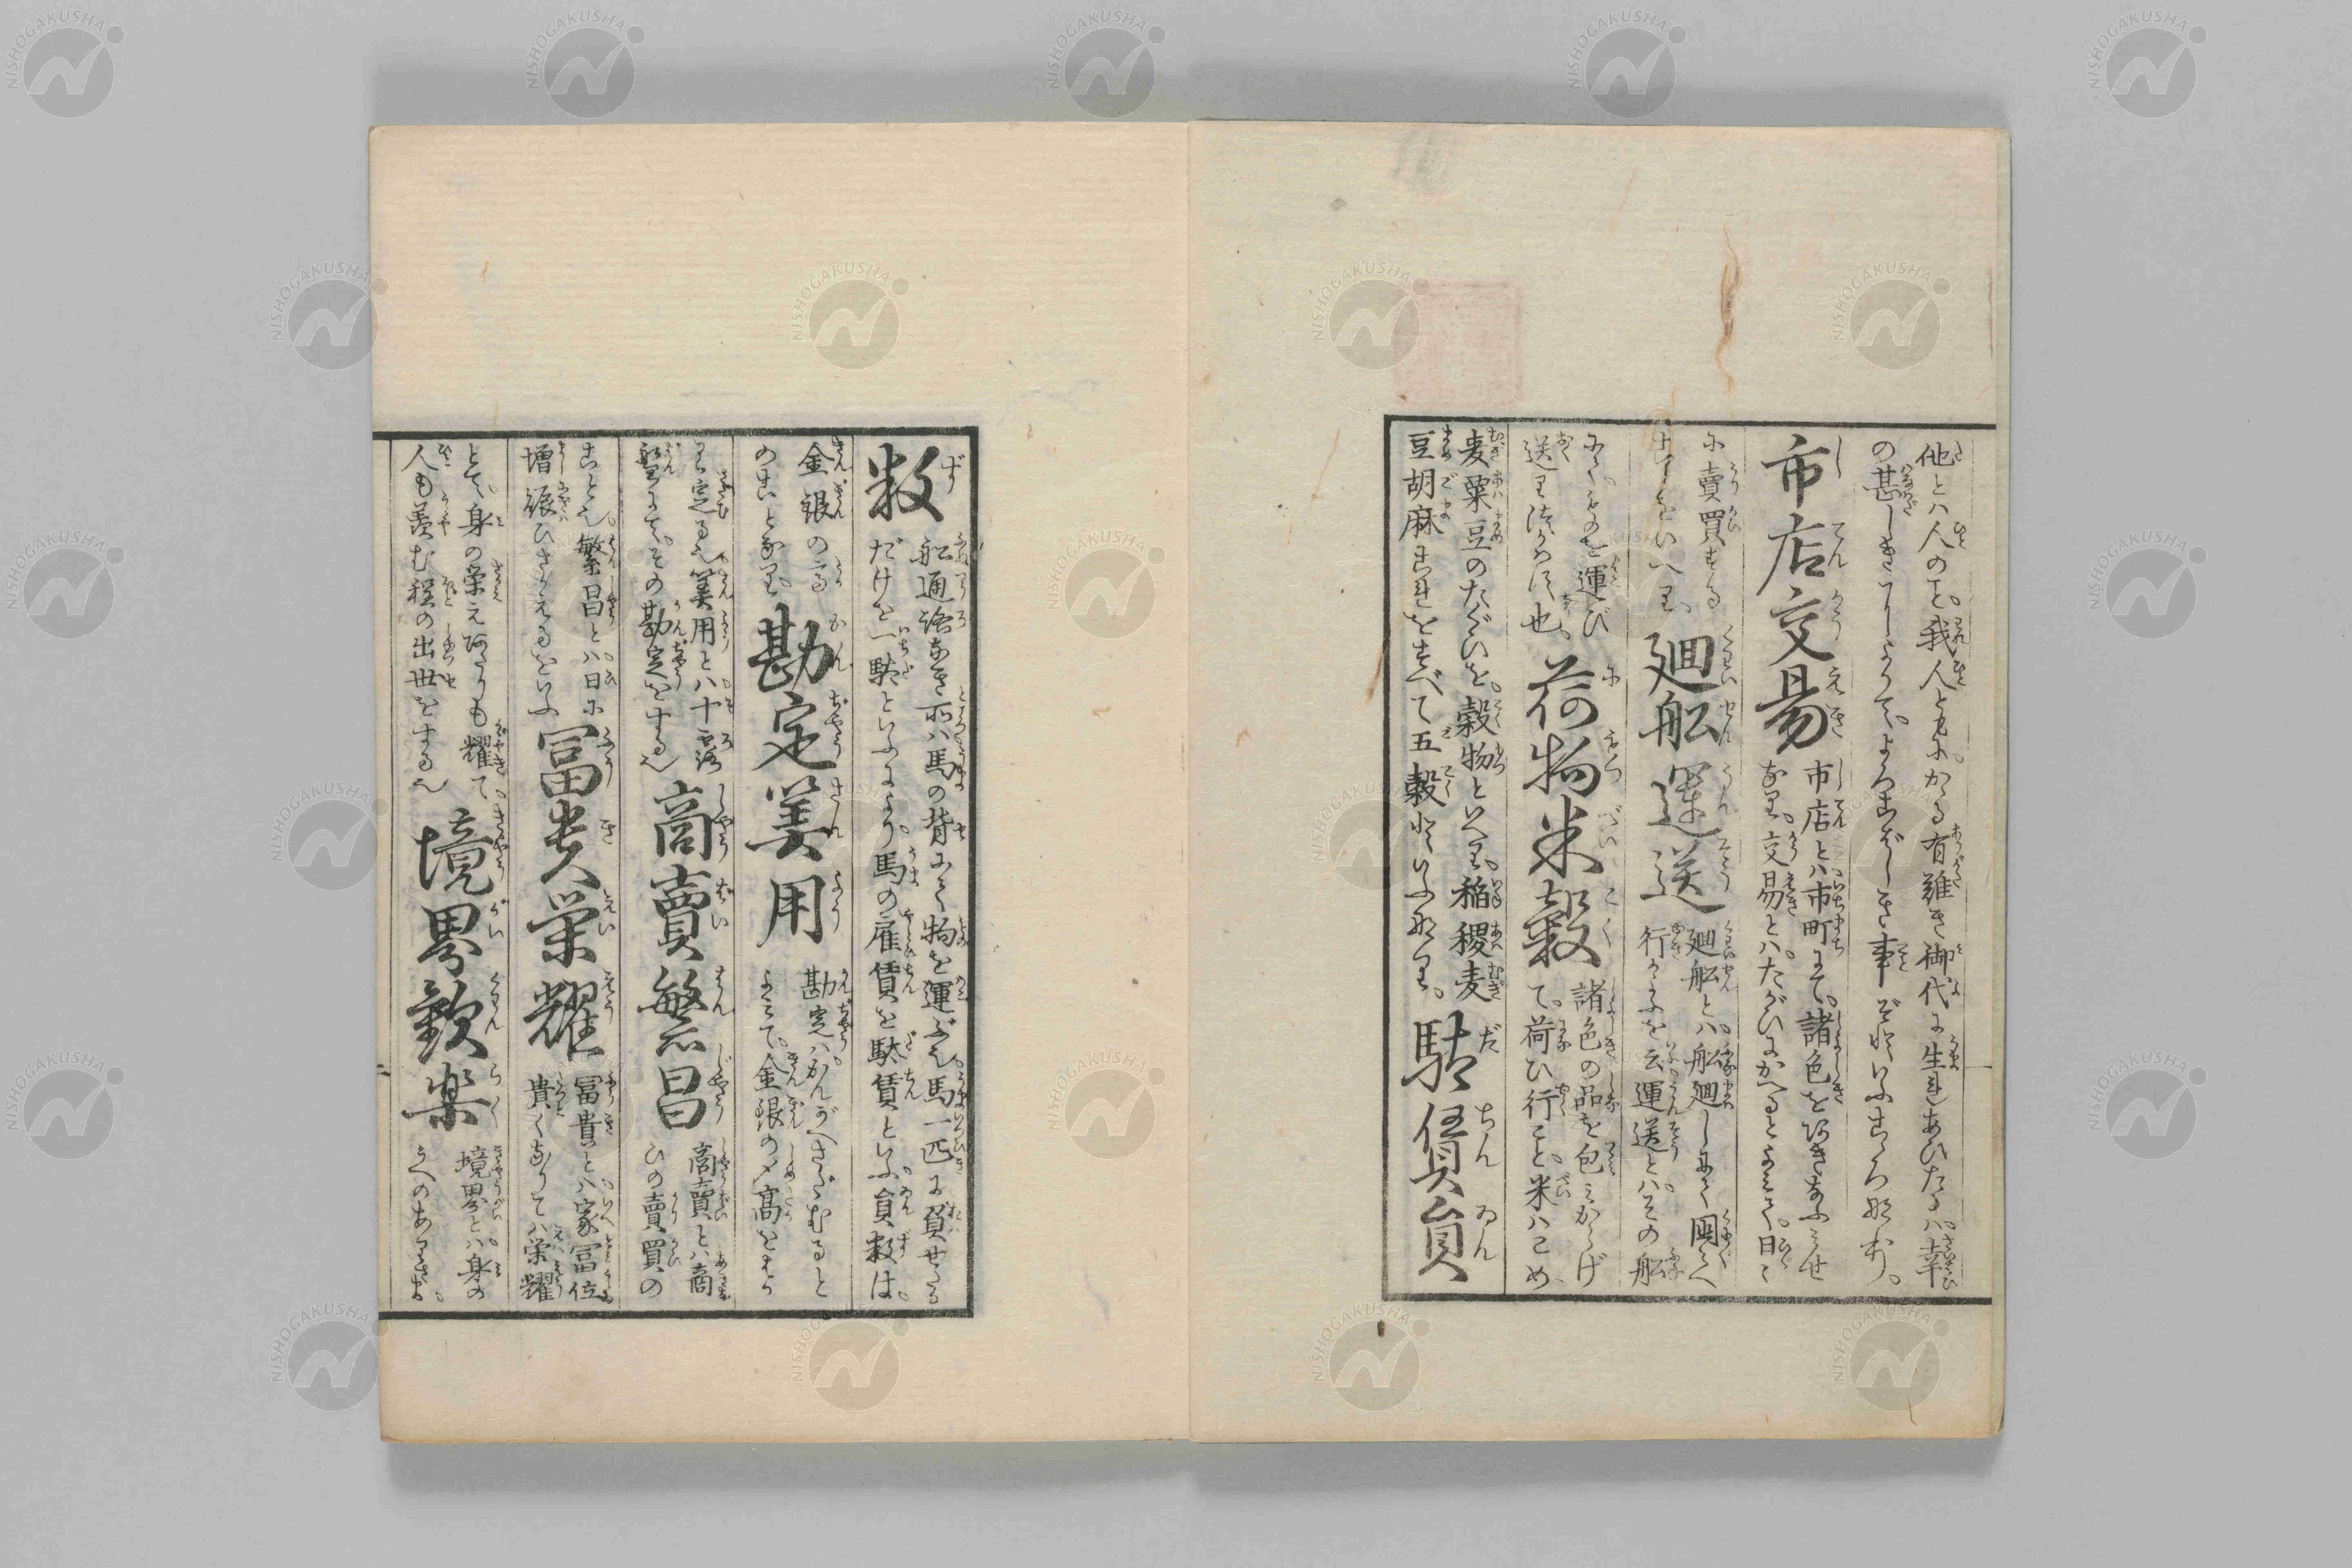 他とハ人のこと。我人ともに。かゝる有難き御代に生れあひたるハ。幸
の甚しきにしよりて。よろこばしき事ぞといふこゝろ也。
市店交易
市店とハ市町にて。諸色をあきなふミせ
なり。交易とハ。たがひにかへるとよミて。日々
に賣買する
ことをいへり。
廻舩運送
廻舩とハ。舩廻しにて國々へ
行かふを云運送とハ。その舩
にて。ものを運び
送りつかハす也。
荷物米穀
諸色の品を包ミからげ
て。荷ひ行こと。米ハこめ
麦粟豆のたぐひを。穀物といへり。稲稷麦
豆胡麻これをすべて五穀といふなり。
駄賃員
数
舩通路なき所ハ馬の背にて物を運ぶ也。馬一匹に負せたる
だけを一駄といふにより。馬の雇賃を駄賃といふ。員数は。
金銀の高
のことなり。
勘定筭用
勘定ハ。かんがへさだむると
よミて。金銀の〆高をはか
り定る也。筭用とハ。十露
盤にて。その勘定をする也
商賣繁昌
商賣とハ商
ひの賣買の
こと也。繁昌とハ。日に
増賑ひさかえるをいふ
冨貴栄耀
冨貴とハ。家冨位
貴くなりてハ栄耀
とて。身の栄えあたりも耀て。
人も羨む程の出世をする也
境界歓楽
境界とハ。身の
うへのありさま。